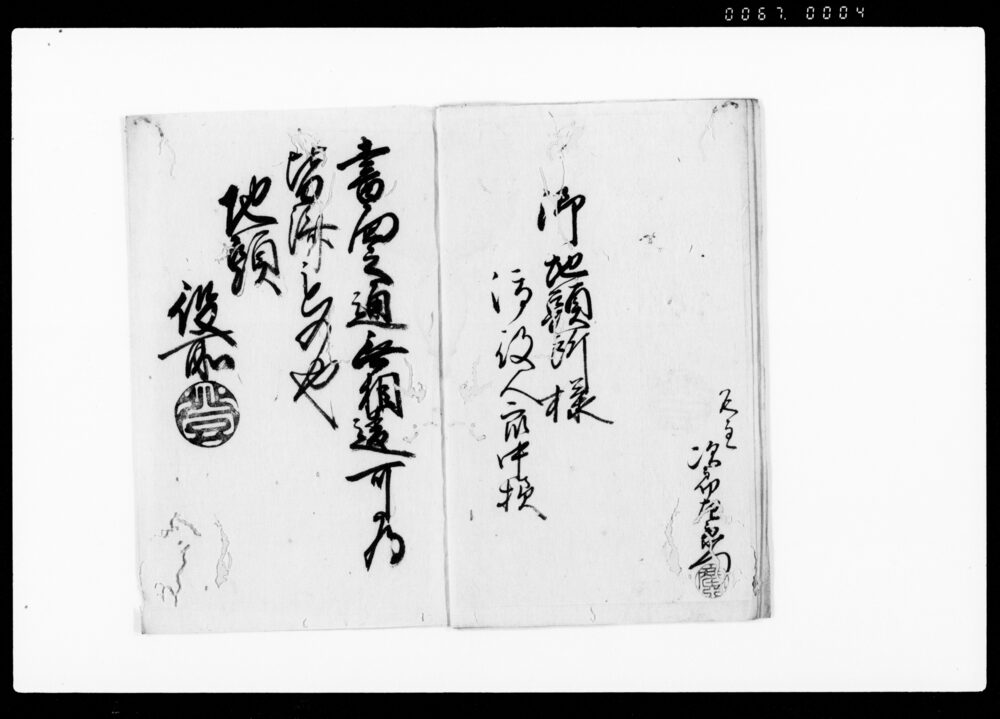 0067. 0004
次郎左衛門
御地頭所様
御役人衆中様
書面之通無相違可為
皆済もの也
地頭
役所